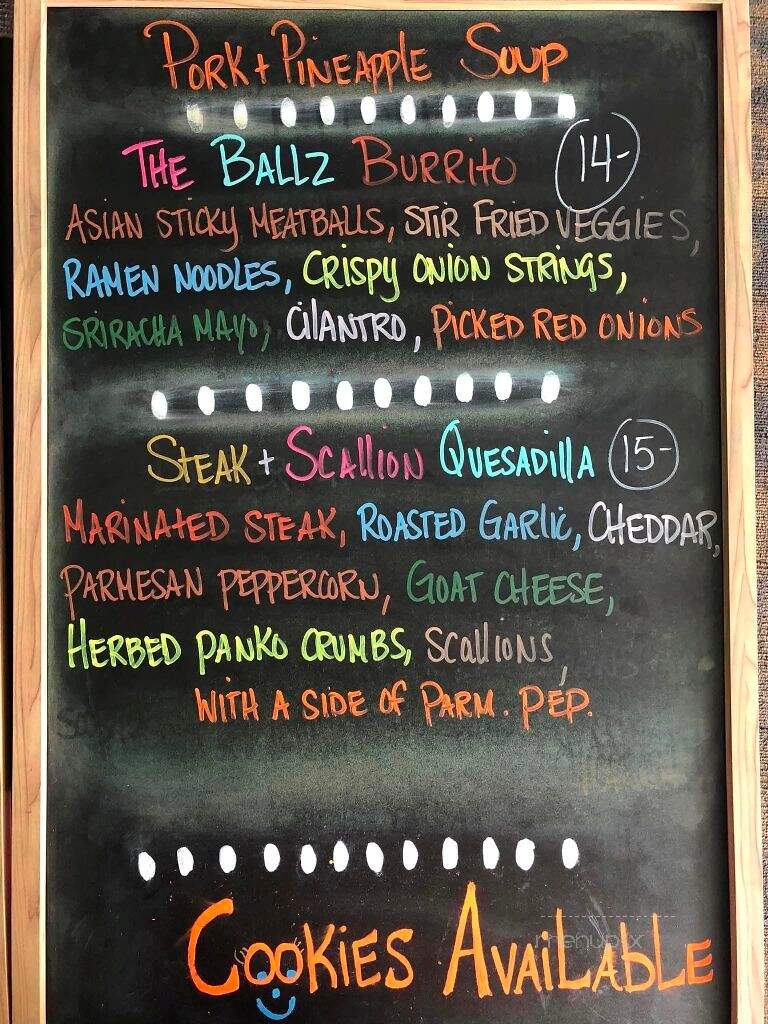 Pork + Pineapple Soup
The Ballz Burrito 14-
Asian Sticky Meatballs, Stir Fried Veggies,
Ramen Noodles, Crispy Onion Strings,
Sriracha Mayo, Cilantro, Picked Red Onions
Steak + Scallion Quesadilla 15-
Marinated Steak, Roasted Garlic, Cheddar,
Parmesan Peppercorn, Goat Cheese,
Herbed Panko Crumbs, Scallions,
With a Side of Parm. Pep.
Cookies Available
menupix